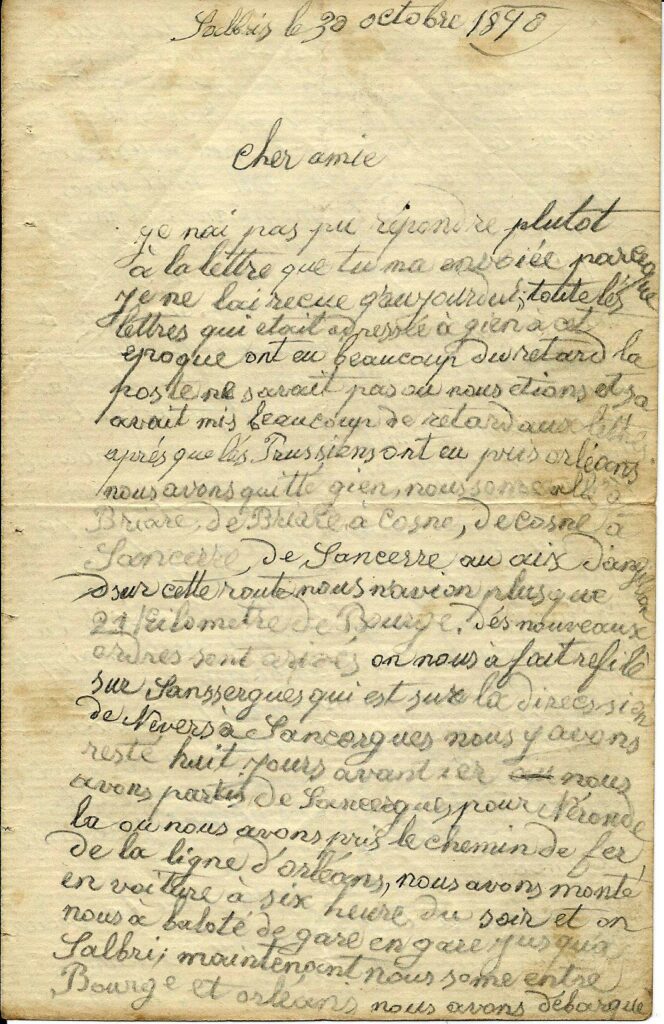 Salbris le 30 octobre 1870
cher amie
je nai pas pu répondre plutot
à la lettre que tu ma envoiée parceque
je ne lai recue qaujourdui; toute lés
lettres qui etait adressée à gien à cet
epoque ont eu beaucoup du retard la
poste ne savait pas ou nous etions et sa
avait mis beaucoup de retard aux lettres
aprés que lés Prussiens ont eu pris orléans
nous avons quitté gien, nous some allé à
Briare, de Briare à Cosne, de Cosne à
Sancerre, de Sancerre au aix dangillon
sur cette route nous navion plus que
21 kilometre de Bourge. dés nouveaux
ordres sont arivés on nous à fait refilé
sur Sanssergues qui est sur la direcssion
de Névers à Sancergues nous y avons
resté huit jours avant ier nous
avons partis de Sancergues pour Néronde
la ou nous avons pris le chemin de fer
de la ligne d'orléans, nous avons monté
en voiture à six heure du soir et on
nous à baloté de gare en gare jusqua
Salbri; maintenant nous some entre
Bourge et orléans nous avons débarqué